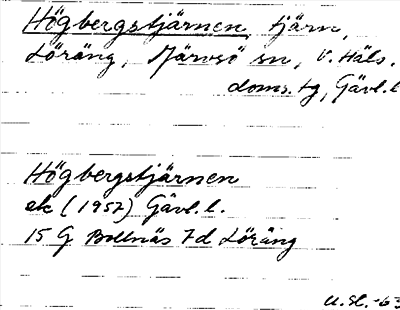 Högbergstjärnen, tjärn,
Löräng, Järvsö sn, V. Häls.
doms. tg, Gävl. l
Högbergstjärnen
ek (1957) Gävl. l.
15 G Bollnäs 7d Löräng
U.Sl. -63